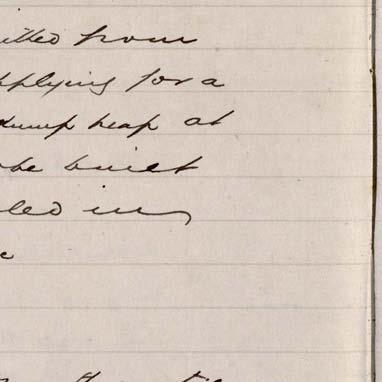 itted from
pplying for a
dump heap at
be built
led in